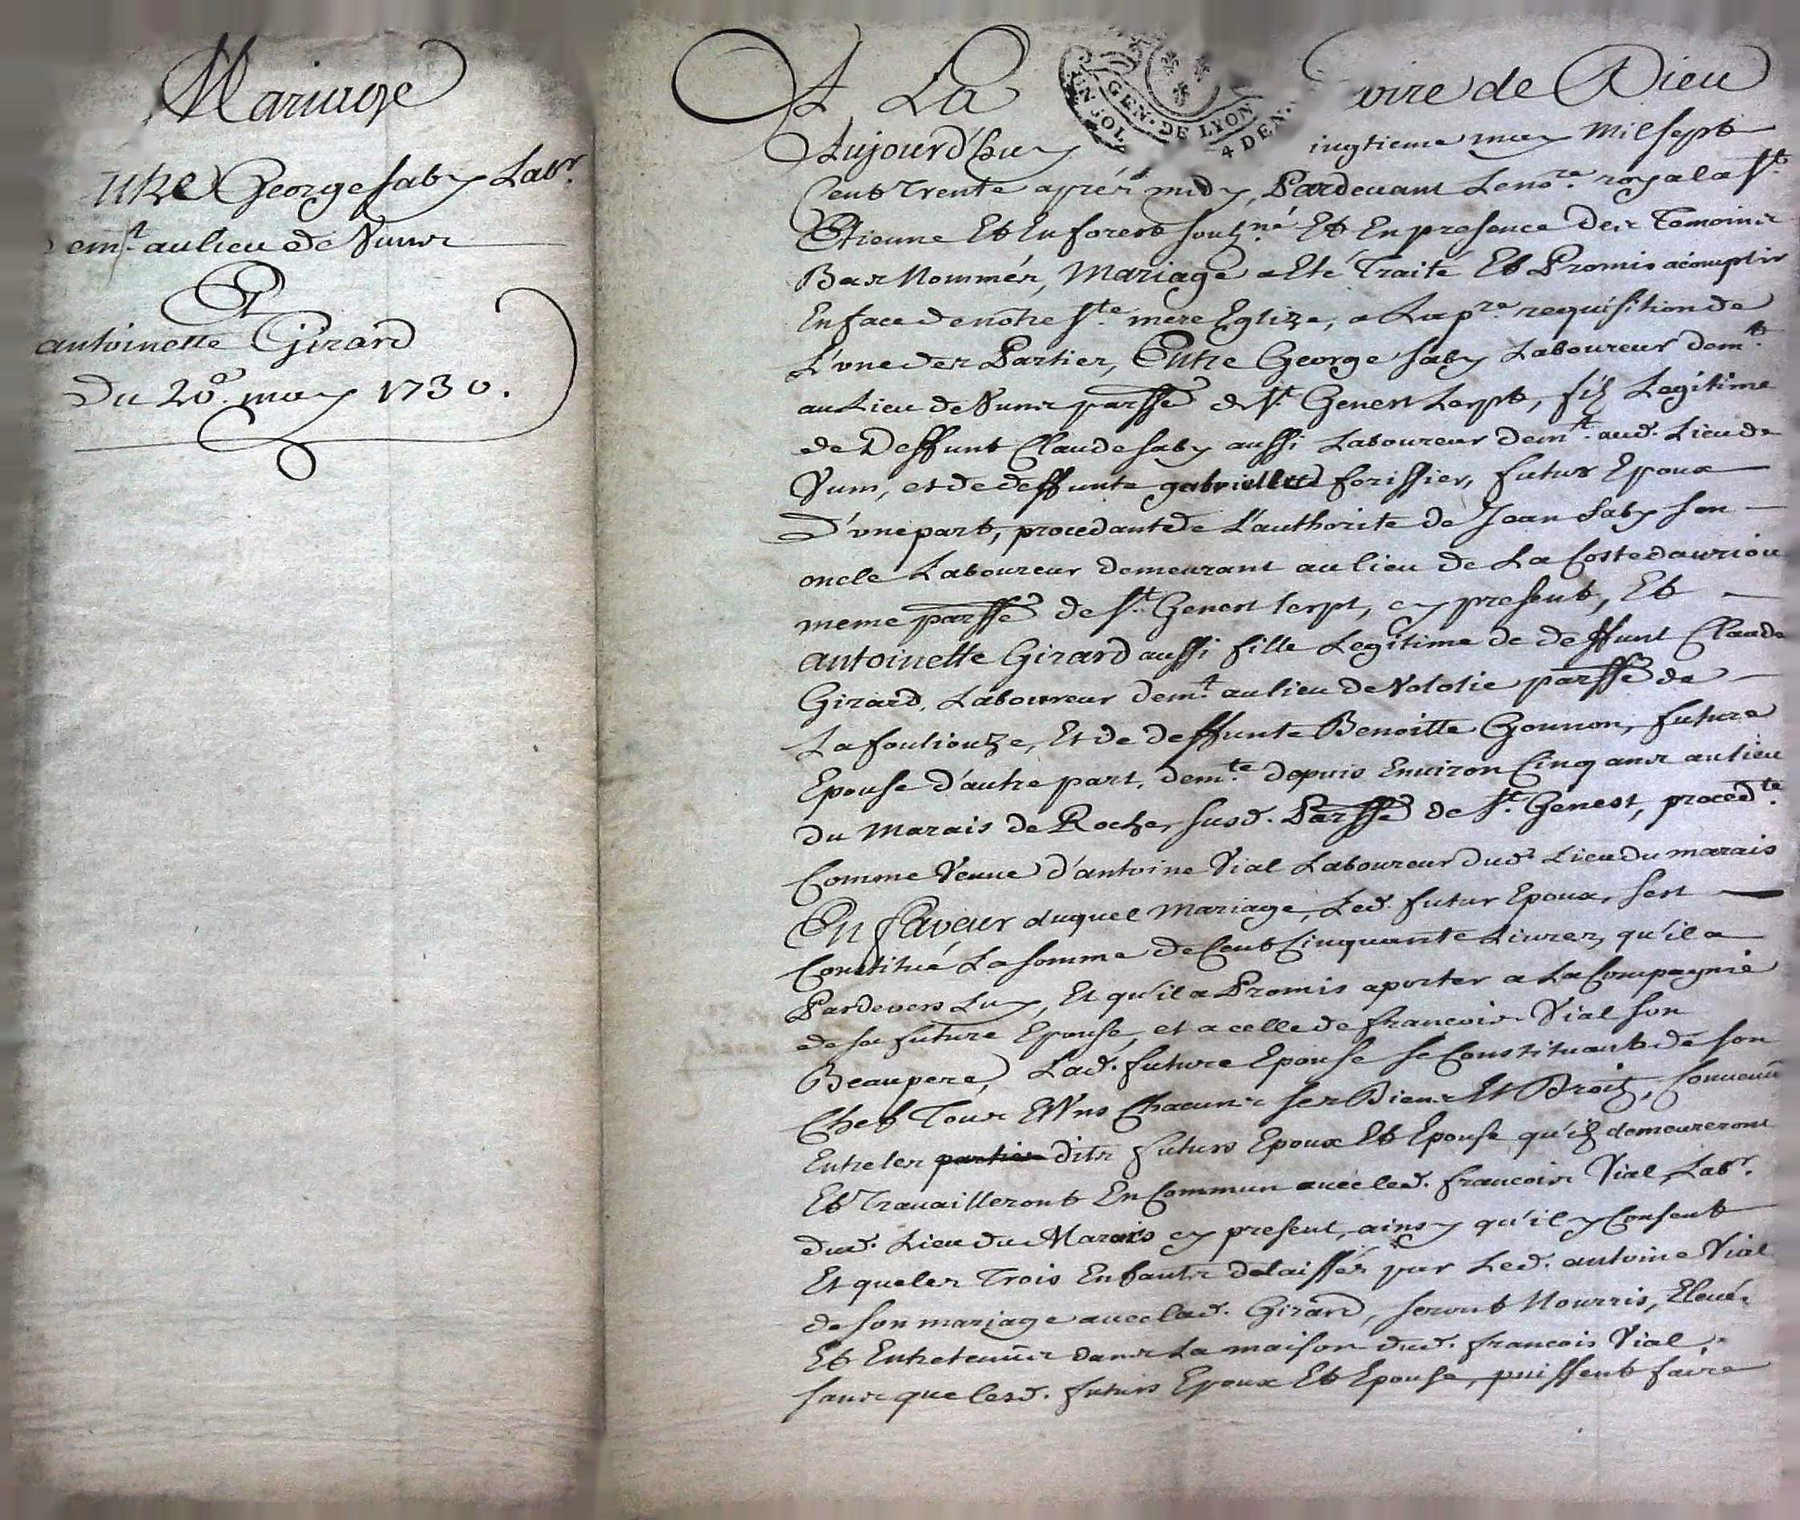 Mariage
entre George Saby Labr.
demt. au lieu de Nuns
Et
antoinette Girard
Du 20e. may 1730.
A La Gloire de Dieu
GEN. DE LYON
4 DEN.
Aujourd'huy vingtieme may Mil sept
Cent Trente aprés midy, Pardevant Le nore. royal a St.
Etienne Et En forest soubzné. Et En presence Des Temoins
Bas Nommés, Mariage a Eté Traité Et Promis acomplir
En face de notre Ste. mere Eglize, a La pre. requisition de
L'une des Parties, Entre George Saby Laboureur demt.
au Lieu de Nuns parsse de St. Genest Lerpt, filz Legitime
de Deffunt Claude Saby aussi Laboureur demt. aud. Lieu de
Nuns, et de deffunte gabrielle forissier, futur Epoux
D'une part, procedant de L'authorité de Jean Saby son
oncle Laboureur demeurant au lieu de La Coste dauriou
meme parsse de St. Genest lerpt, cy present, Et
antoinette Girard aussi fille Legitime de deffunt Claude
Girard, Laboureur demt. au lieu de Volotie parsse de
La fouliouze, Et de deffunte Benoitte Gounon, future
Epouse d'autre part, demte. depuis Environ Cinq ans au lieu
du Marais de Roche, susd. Parsse de St. Genest, procedte.
Comme Veuve d'antoine Vial Laboureur dud. Lieu du marais
En faveur duquel Mariage, Led. futur Epoux, sest
Constitué La somme de Cent Cinquante Livres, qu'il a
Pardevers Luy, Et qu'il a Promis aporter a La Compagnie
de sa future Epouse, et a celle de francois Vial son
Beaupere, Lad. future Epouse se Constituant de son
Chef Tous Et Uns Chacuns ses Biens Et Droitz, Convenu
Entre les parties dits futurs Epoux Et Epouse qu'ilz demeureront
Et Travailleront En Commun avec led. francois Vial, Labr.
dud. Lieu du Marais cy present, ainsy qu'il y Consent
Et que les Trois Enfants delaissés par Led. antoine Vial
de son mariage avec lad. Girard, seront Nourris, Elevés
Et Entretenus dans La maison dud. francois Vial,
sans que lesd. futurs Epoux Et Epouse, puissent faire